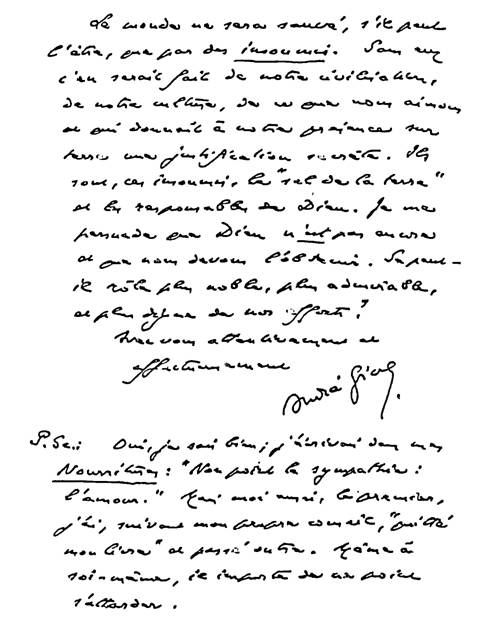 Le monde ne sera sauvé, s'il peut
l'être, que par des insoumis. Sans eux
c'en serait fait de notre civilisation,
de notre culture, de ce que nous aimons
et qui donnait à notre présence sur
terre une justification secrète. Ils
sont, ces insoumis, le "sel de la terre"
et les responsables de Dieu. Je me
persuade que Dieu n'est pas encore
et que nous devons l'obtenir. Se peut-
il rôle plus noble, plus admirable,
et plus digne de nos efforts?
attentivement et
affectueusement
André Gide.
P. Sc.: Oui, je sais bien; j'écrivais dans mes
Nourritures: "Non point la sympathie:
l'amour." Mais moi aussi, le premier,
j'ai, suivant mon propre conseil, "quitté
mon livre" et passé outre. Même à
soi-même, il importe de ne point
s'attarder.